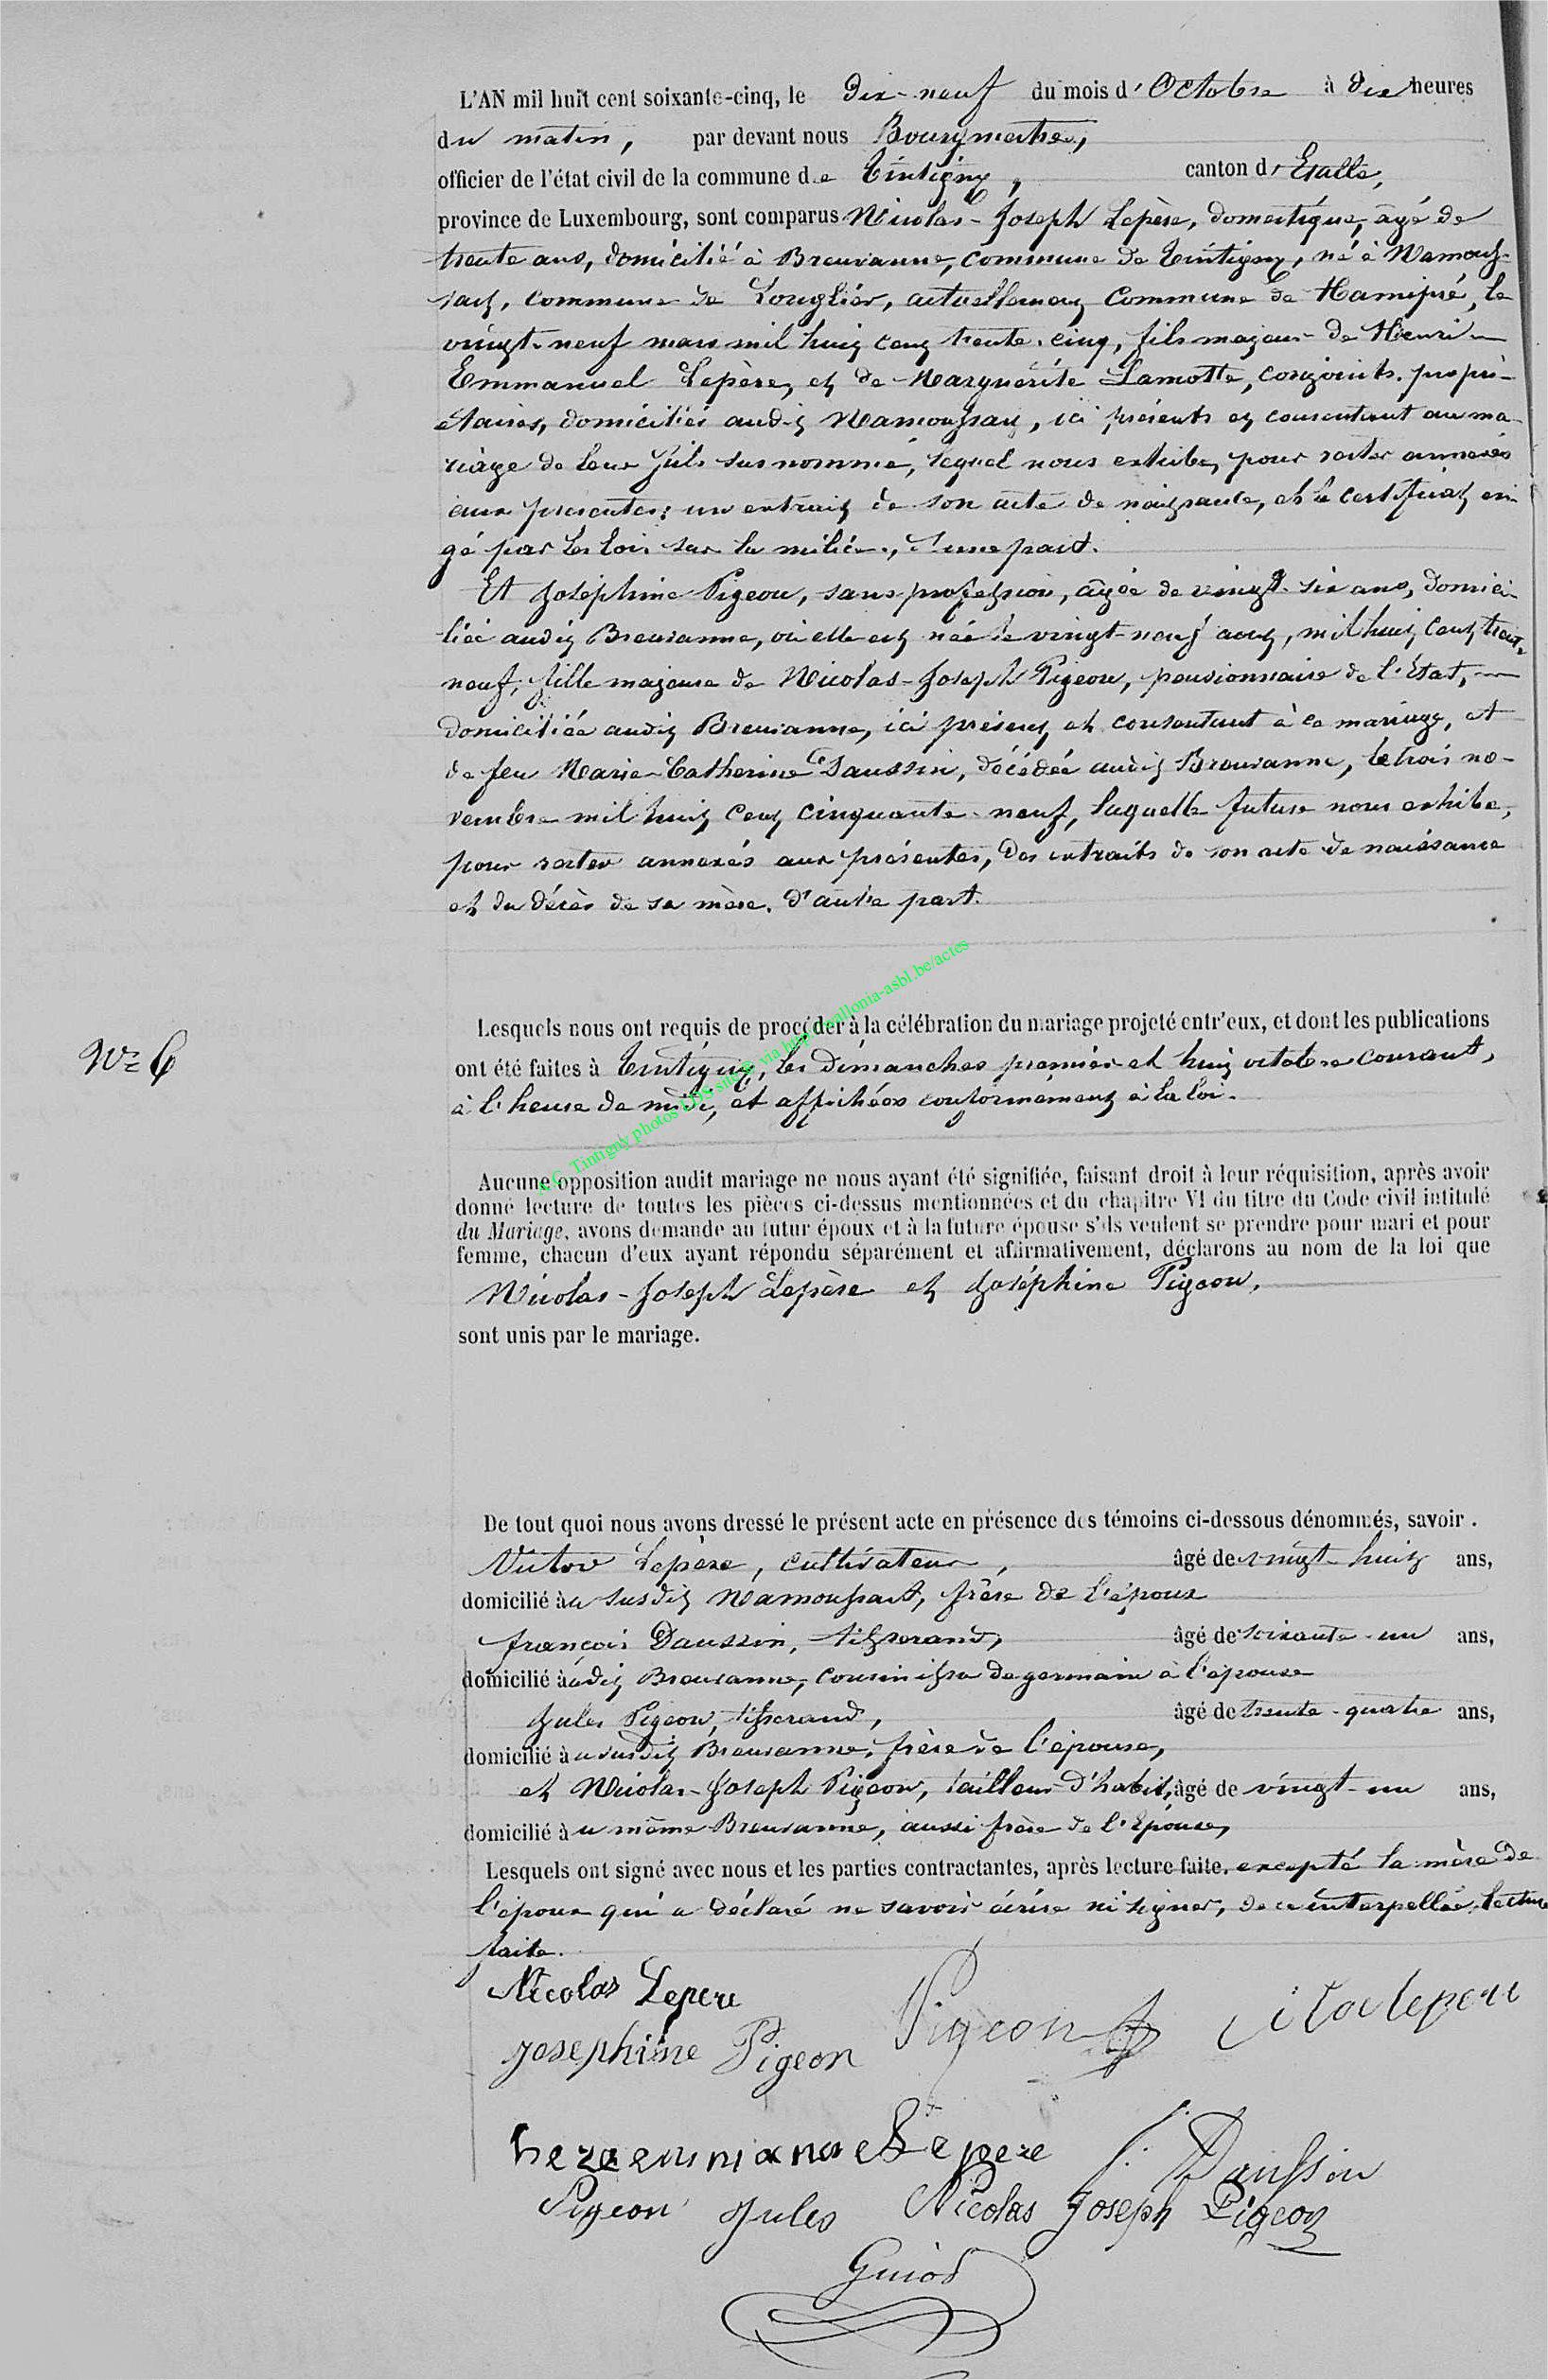 L'AN mil huit cent soixante-cinq, le dix-neuf du mois d'Octobre à dix heures
du matin, par devant nous Bourgmestre,
officier de l'état civil de la commune de Tintigny, canton d'Etalle,
province de Luxembourg, sont comparus Nicolas-Joseph Lepère, domestique, âgé de
trente ans, domicilié à Breuvanne, commune de Tintigny, né à Namous-
sart, commune de Longlier, actuellement commune de Hamipré, le
vingt-neuf mars mil huit cent trente-cinq, fils majeur de Henri
Emmanuel Lepère, et de Marguérite Lamotte, conjoints, propri-
étaires, domiciliés audit Namoussart, ici présents et consentant au ma-
riage de leur fils sus nommé, lequel nous exhibe, pour rester annexés
aux présentes: un extrait de son acte de naissance, et le certificat exi-
gé par les lois sur la milice, d'une part.
Et Joséphine Pigeon, sans profession, âgée de vingt-six ans, domici-
liée audit Breuvanne, où elle est née le vingt-neuf aout, mil huit cent trente
neuf, fille majeure de Nicolas-Joseph Pigeon, pensionnaire de l'Etat,
domiciliée audit Breuvanne, ici présent et consentant à ce mariage, et
de feu Marie-Catherine Daussin, décédée audit Breuvanne, le trois no-
vembre mil huit cent cinquante-neuf, laquelle future nous exhibe,
pour rester annexés aux présentes, des extraits de son acte de naissance
et du décès de sa mère, d'autre part.
Lesquels nous ont requis de procéder à la célébration du mariage projeté entr'eux, et dont les publications
N° 6
ont été faites à Tintigny, les dimanches premier et huit octobre courant,
à l'heure de midi, et affichées conformément à la loi.
A.C. Tintigny photos LDS suite via http://wallonia-asbl.be/actes
Aucune opposition audit mariage ne nous ayant été signifiée, faisant droit à leur réquisition, après avoir
donné lecture de toutes les pièces ci-dessus mentionnées et du chapitre VI du titre du Code civil intitulé
du Mariage, avons demande au futur époux et à la future épouse s'ils veulent se prendre pour mari et pour
femme, chacun d'eux ayant répondu séparément et affirmativement, déclarons au nom de la loi que
Nicolas-Joseph Lepère et Joséphine Pigeon,
sont unis par le mariage.
De tout quoi nous avons dressé le présent acte en présence des témoins ci-dessous dénommés, savoir.
Victor Lepère, cultivateur, âgé de vingt-huit ans,
domicilié au susdit Namoussart, frère de l'époux
François Daussin, tisserand, âgé de soixante-un ans,
domicilié àudit Breuvanne, cousin issu de germain à l'épouse
Jules Pigeon, tisserand, âgé de trente-quatre ans,
domicilié àu susdit Breuvanne, frère de l'épouse,
et Nicolas-Joseph Pigeon, tailleur d'habit, âgé de vingt-un ans,
domicilié àu même Breuvanne, aussi frère de l'Epouse,
Lesquels ont signé avec nous et les parties contractantes, après lecture faite, excepté la mère de
l'époux qui a déclaré ne savoir écrire ni signer, de ce interpellée, lecture
faite.
Nicolas Lepere
Pigeon
Josephine Pigeon
Lepere
F: Daussin
Pigeon Jules Nicolas Joseph Pigeon
Guiod